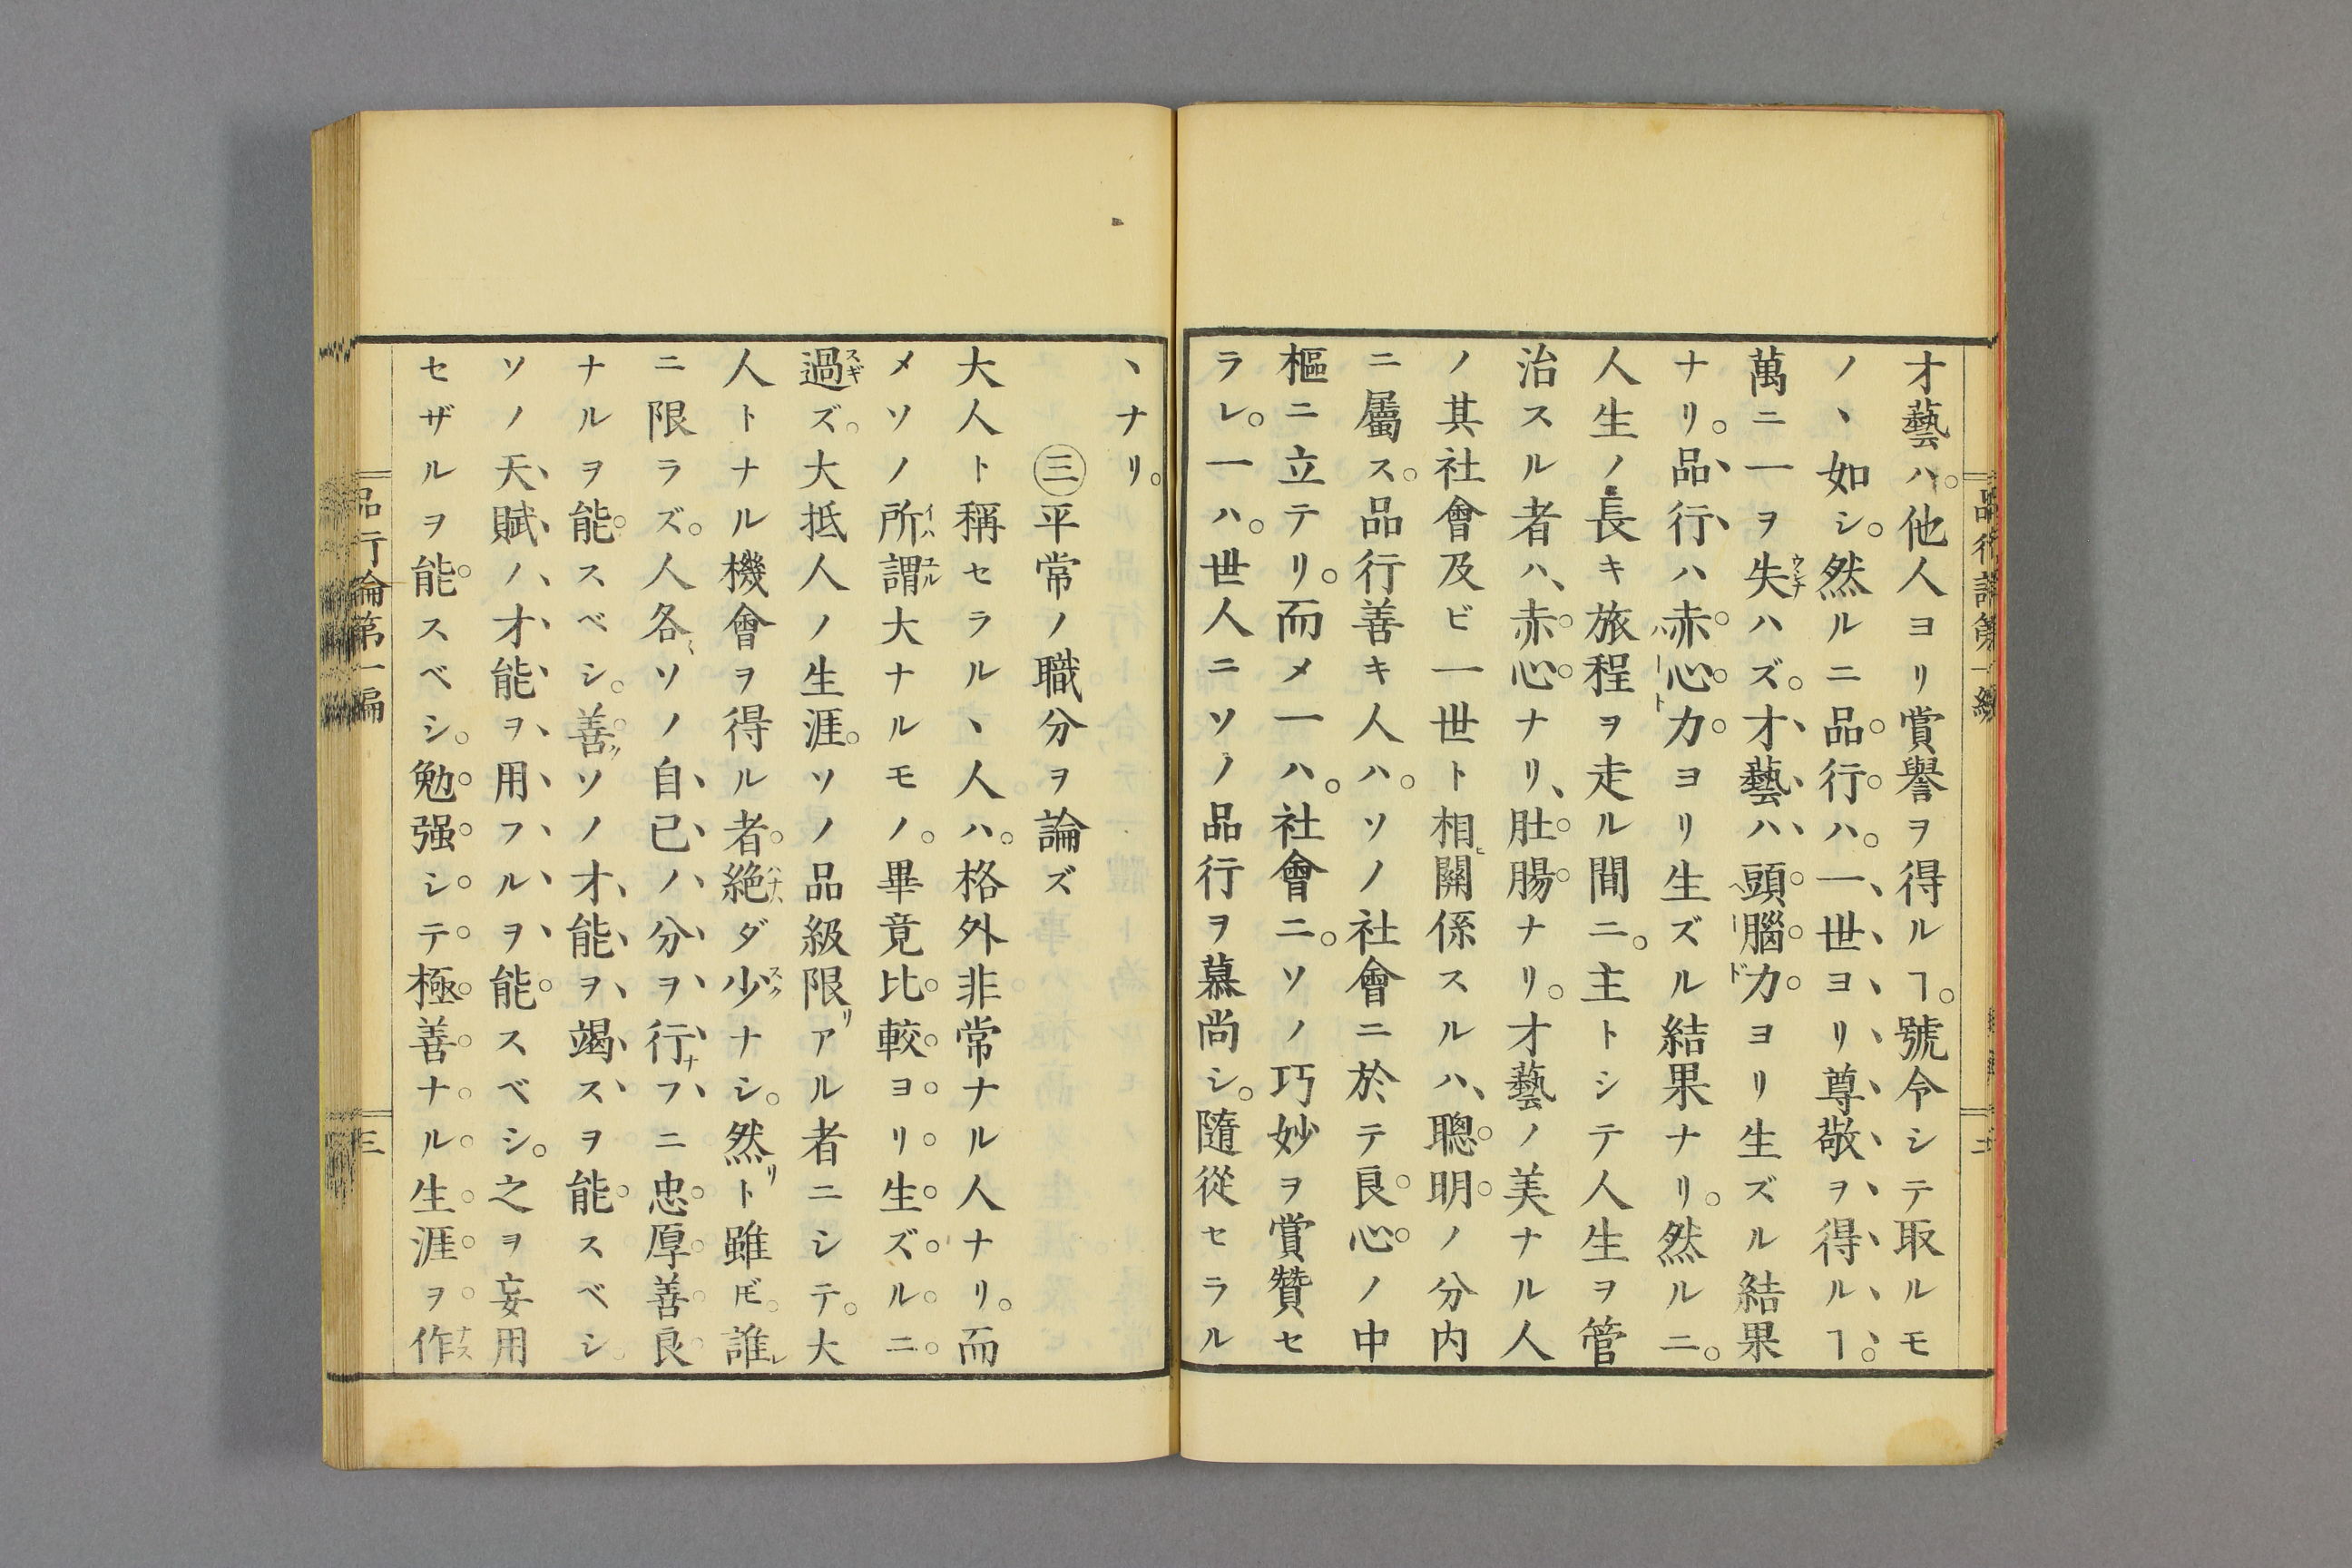 才藝ハ。他人ヨリ賞譽ヲ得ルヿ。號令シテ取ルモ
ノヽ如シ。然ルニ品行ハ。一世ヨリ尊敬ヲ得ルヿ。
萬ニ一ヲ失ハズ。才藝ハ頭腦力ヨリ生ズル結果
ナリ。品行ハ赤心力ヨリ生ズル結果ナリ。然ルニ。
人生ノ長キ旅程ヲ走ル間ニ。主トシテ人生ヲ管
治スル者ハ、赤心ナリ、肚腸ナリ。才藝ノ美ナル人
ノ其社會及ビ一世ト相關係スルハ、聰明ノ分内
ニ屬ス。品行善キ人ハ。ソノ社會ニ於テ良心ノ中
樞ニ立テリ。而メ一ハ。社會ニ。ソノ巧妙ヲ賞贊セ
ラレ。一ハ。世人ニソノ品行ヲ慕尚シ。隨從セラル
ヽナリ。
㊂平常ノ職分ヲ論ズ
大人ト稱セラルヽ人ハ。格外非常ナル人ナリ。而
メソノ所謂大ナルモノ。畢竟比較ヨリ生ズルニ
過ズ。大抵人ノ生涯。ソノ品級限アル者ニシテ。大
人トナル機會ヲ得ル者。絶ダ少ナシ。然ト雖𪜈。誰
ニ限ラズ。人各〻ソノ自己ノ分ヲ行フニ忠厚善良
ナルヲ能スベシ。善ソノ才能ヲ竭スヲ能スベシ。
ソノ天賦ノ才能ヲ用フルヲ能スベシ。之ヲ妄用
セザルヲ能スベシ。勉强シテ極善ナル生涯ヲ作
品行論第一編
三